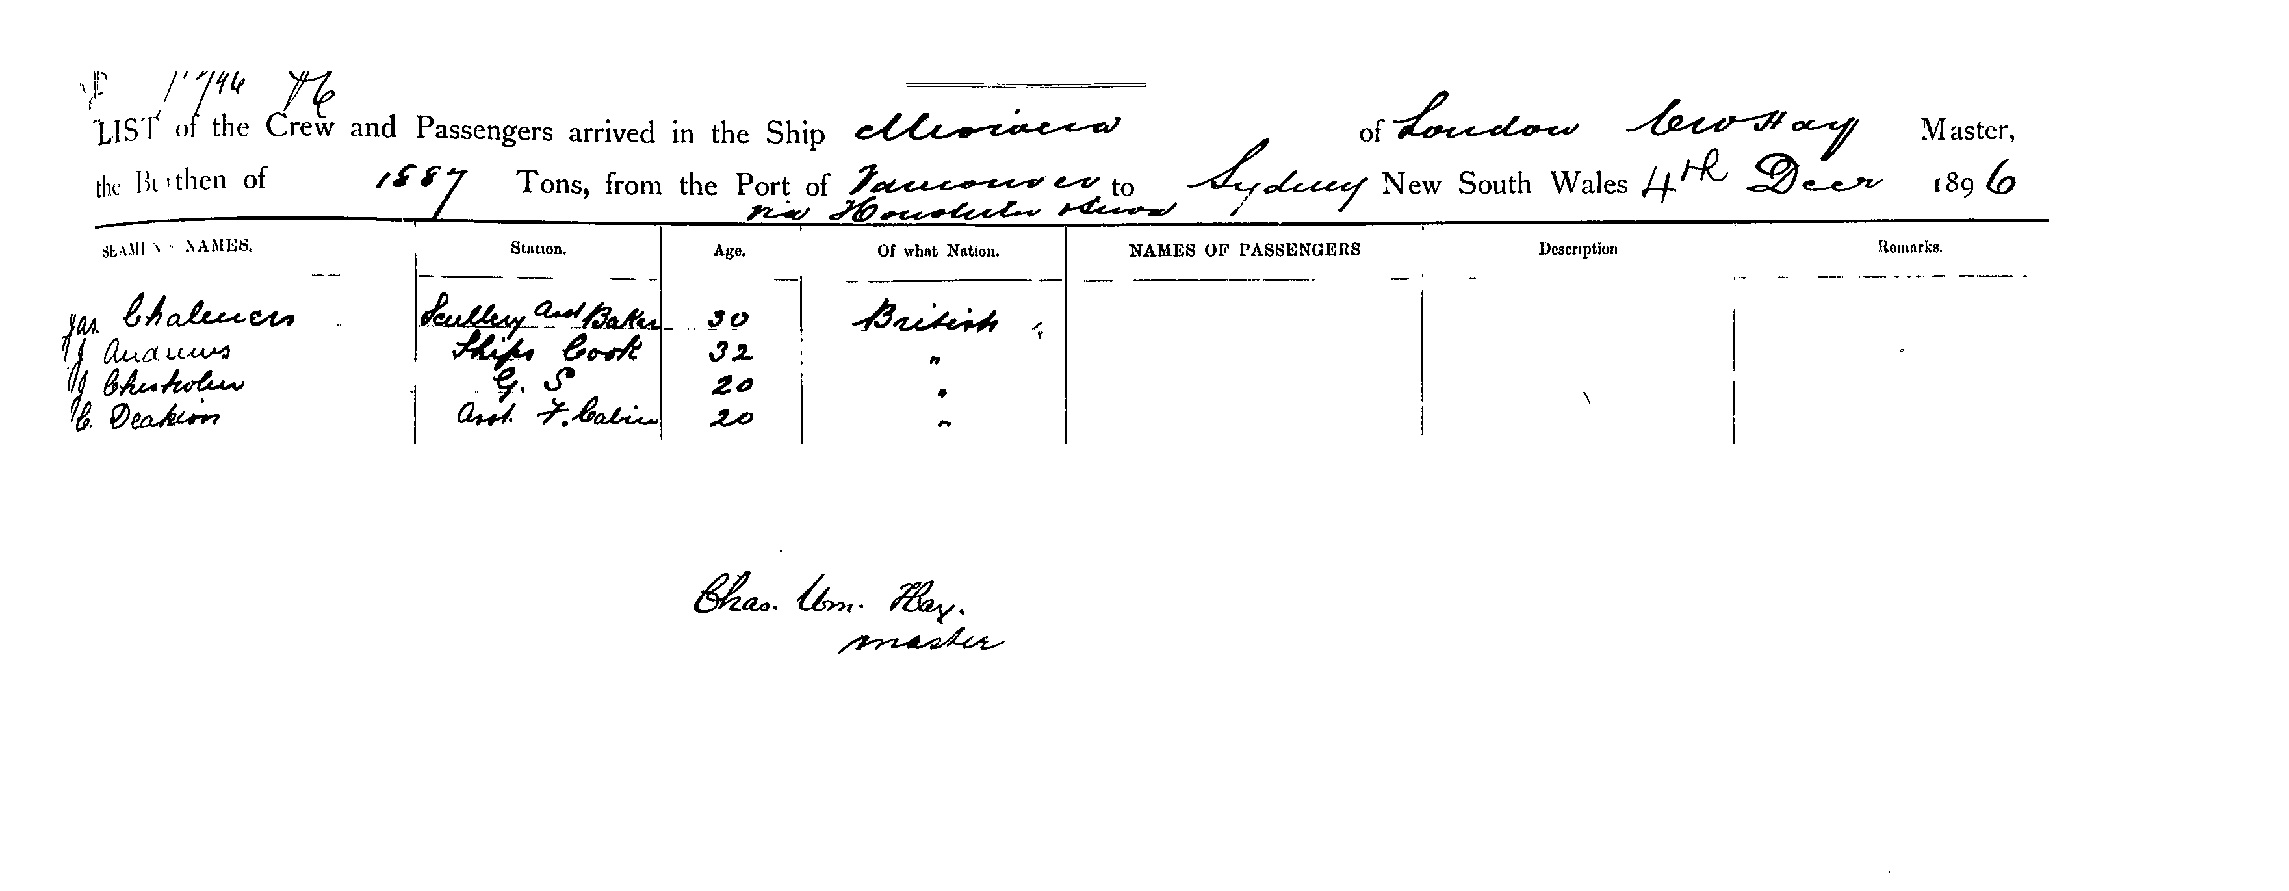 LIST of the Crew and Passengers arrived in the Ship Miowera of London C W Hay Master,
the Burthen of 1887 Tons, from the Port of Vancouver to Sydney New South Wales 4th Decr 1896
via Honolulu & Suva
SEAMEN'S NAMES. Station. Age. Of what Nation. NAMES OF PASSENGERS Description Remarks.
Jas. Chalmers Scullery Asst Baker 30 British
J Andrews Ships Cook 32 "
J Chisholm G. S 20 "
C. Deakin Asst. F. Cabin 20 "
Chas. Wm. Hay.
master